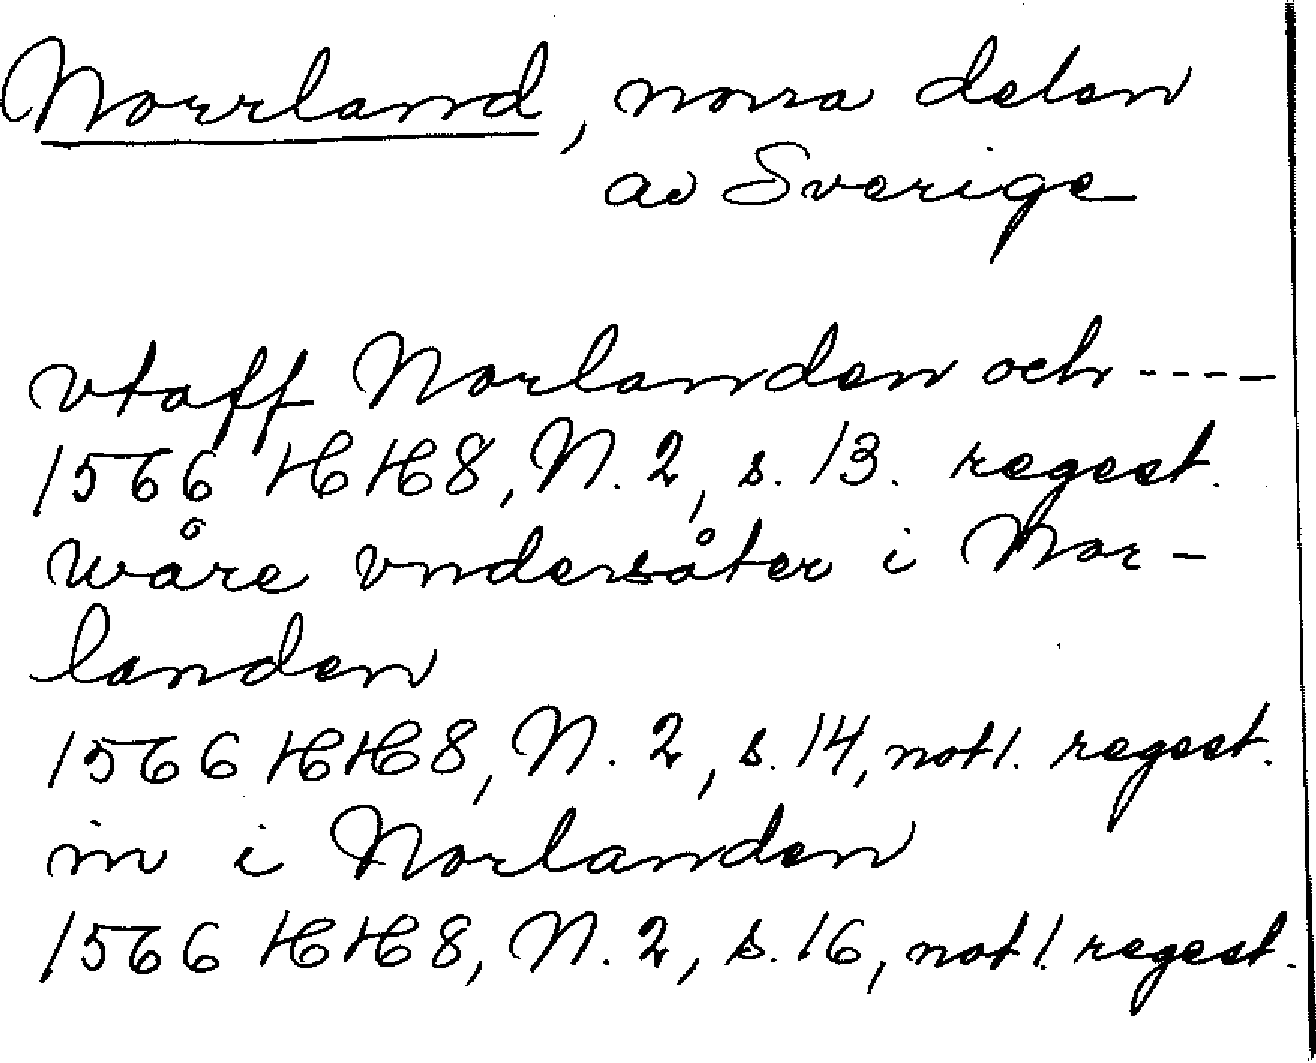 Norrland, norra delen
av Sverige
vtaff Norlanden och ----
1566 HH8, N. 2, s. 13. regest.
wåre vndersåter i Nor-
landen
1566 HH8, N. 2, s. 14, not 1. regest.
in i Norlanden
1566 HH8, N. 2, s. 16, not 1. regest.